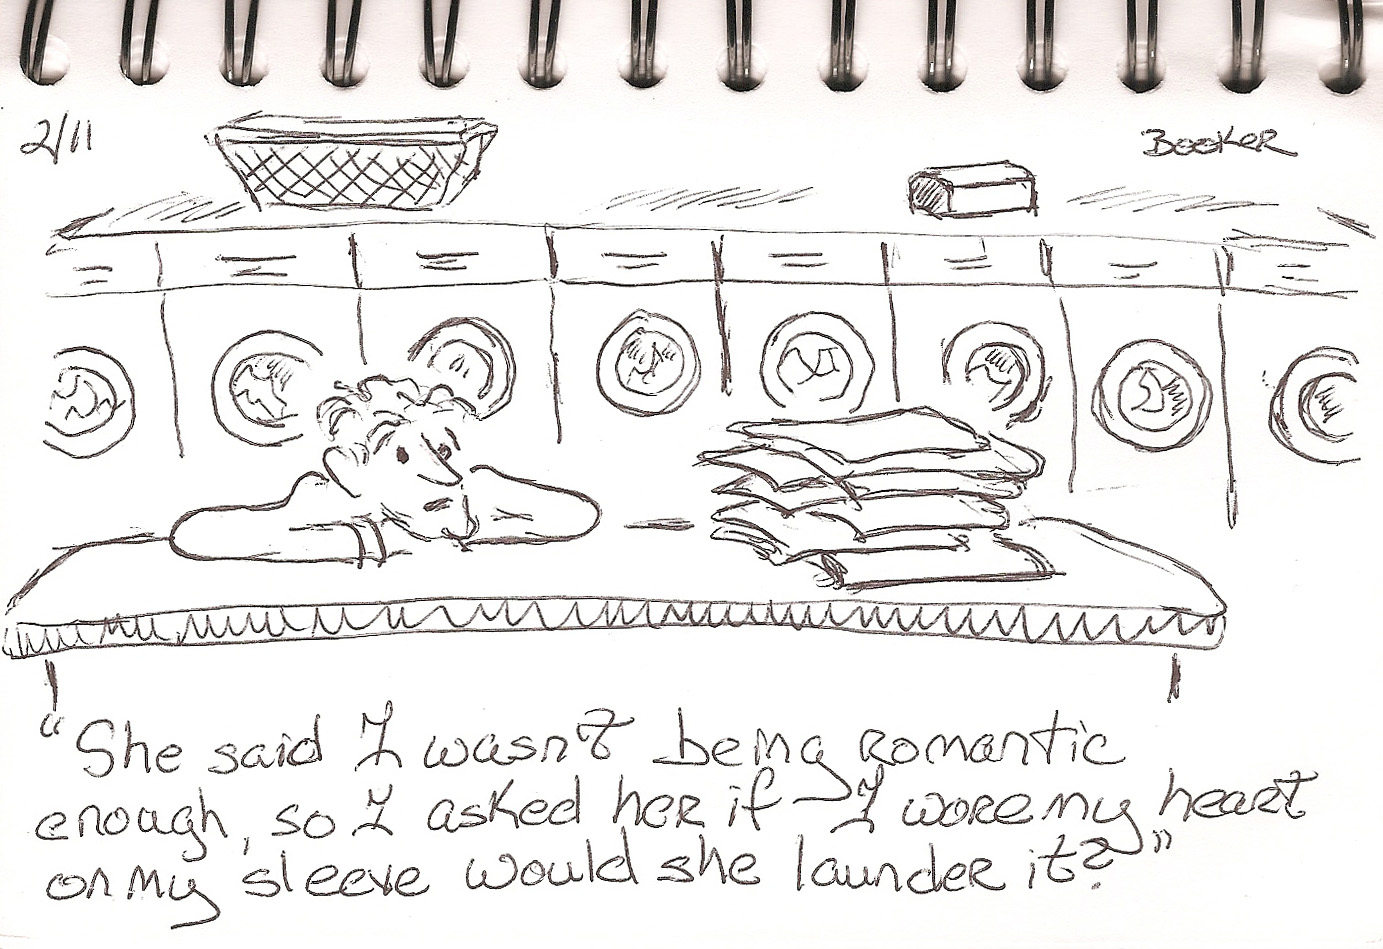 2/11
BOOKER
"She said I wasn't being romantic
enough, so I asked her if I wore my heart
on my sleeve would she launder it?"